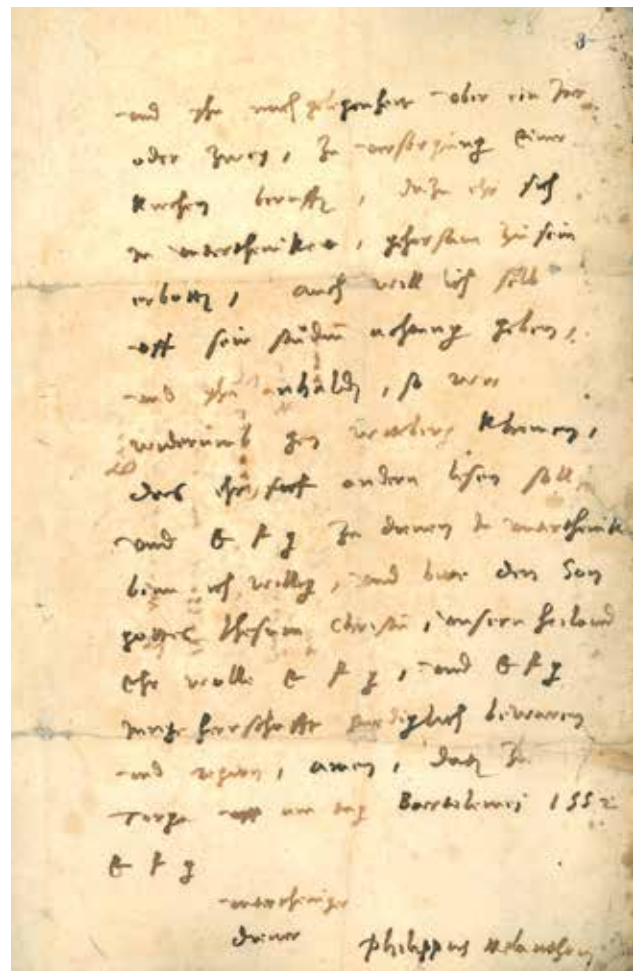 3
und yhn nach gelegenheit uber ein Jar
oder zwey, zu versorgung einer
kirchen berufft, dazu ehr sich
in untertheniker, gehorsam zu sein
erbotten, auch will ich selb
uff sein studiu achtung geben,
und yhn anhalden, so wir
widerumb gen witeberg khomen,
das ehr, andern lesen soll,
und E F g zu dienen in untertheniket
binn ich willig, und bitte den Son
gottes Ihesum Christu, unsern heiland
ehr wolle E F g, und E F g
junge herschafft gnediglich bewaren
und regirn, amen, dat zu
Torga am tag Bartolomei 1552
E F g
untertheniger
diener
Philippus Melanthon